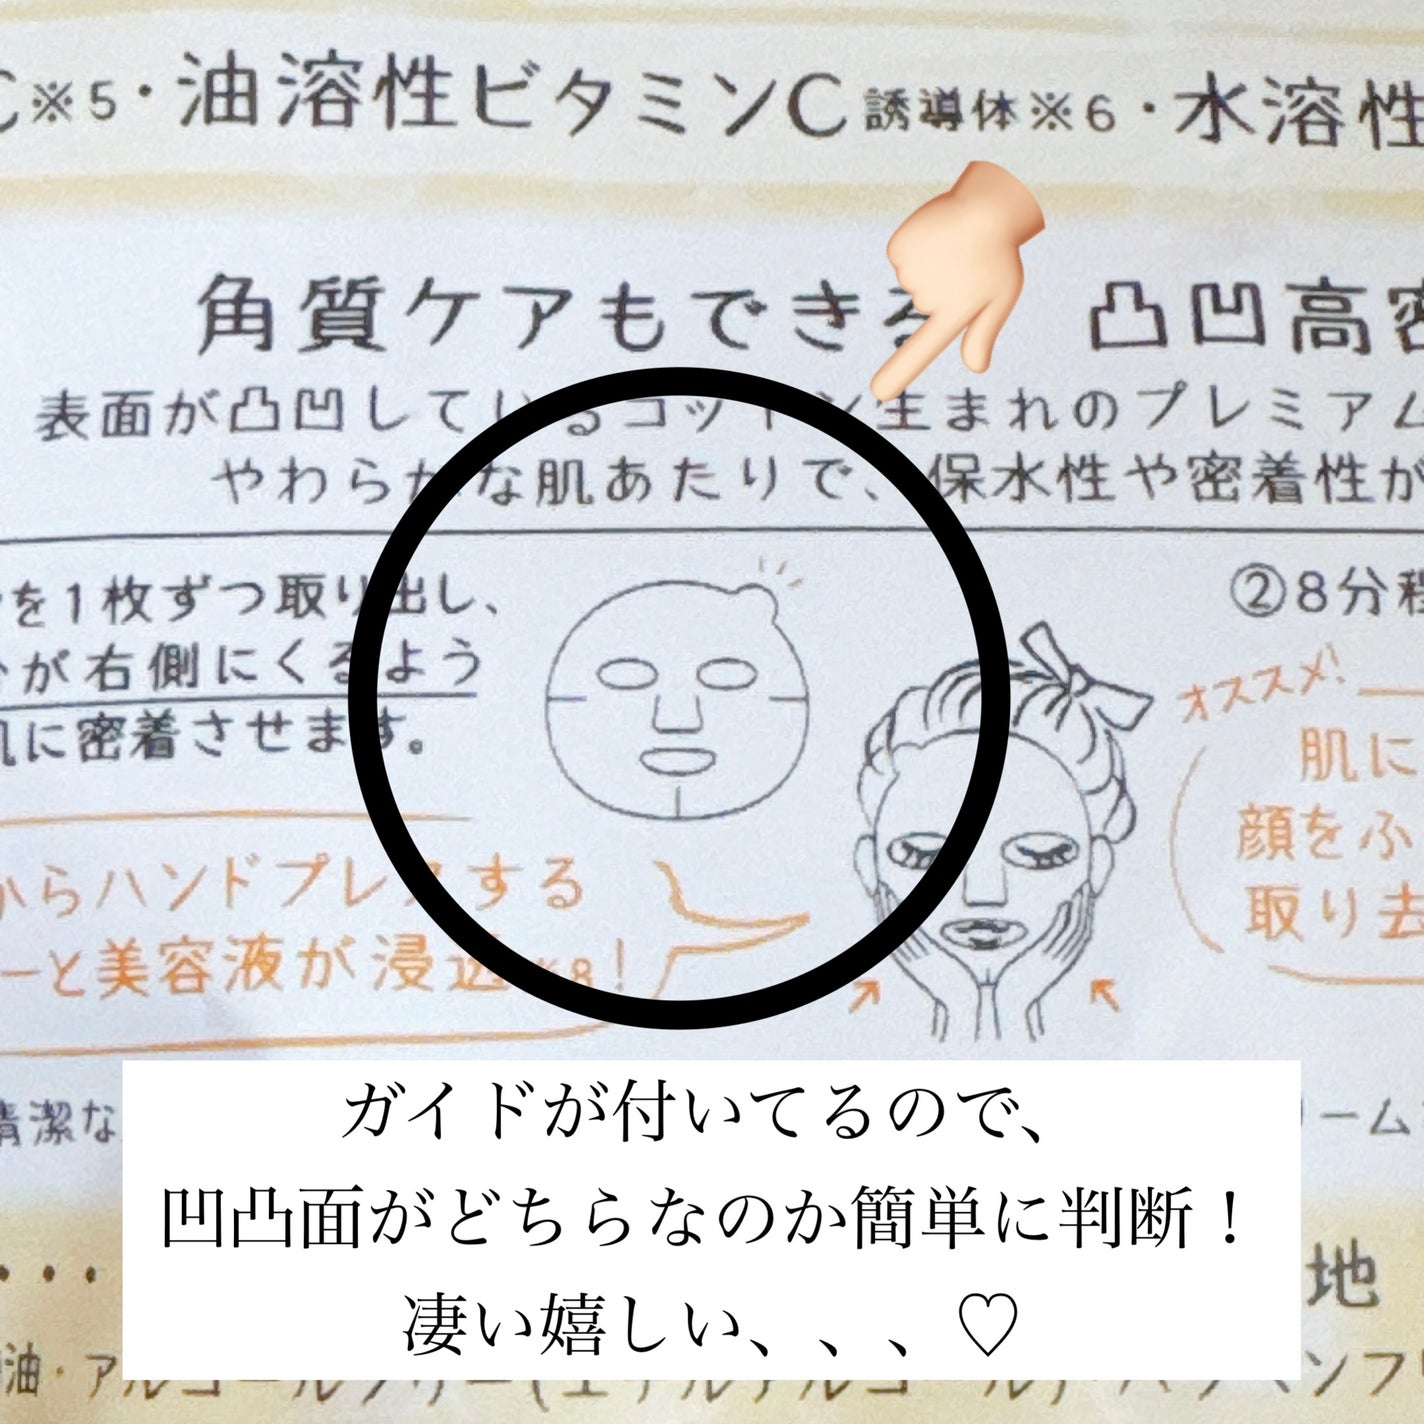 C※5・油溶性ビタミンC誘導体※6・水溶性
角質ケアもできる 凸凹高密
表面が凸凹しているコットン生まれのプレミアム
やわらかな肌あたりで、保水性や密着性が
を1枚ずつ取り出し、
が右側にくるよう
肌に密着させます。
②8分程
オススメ!
肌に
顔をふ
取り去
からハンドプレスする
ーと美容液が浸透※8!
清潔な
リーム
ガイドが付いてるので、
凹凸面がどちらなのか簡単に判断！
凄い嬉しい、、、♡
・・・
地
油・アルコールフリー(エチルアルコール)・パラベンフリ